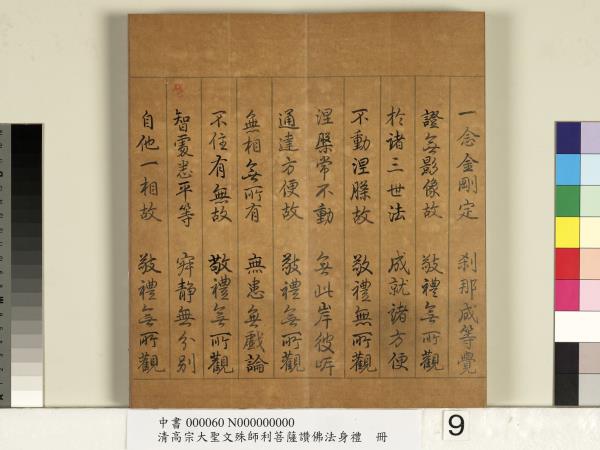 一念金剛定 刹那成等覺
證無影像故 敬禮無所觀
於諸三世法 成就諸方便
不動涅槃故 敬禮無所觀
涅槃常不動 無此岸彼岸
通達方便故 敬禮無所觀
無相無所有 無患無戲論
不住有無故 敬禮無所觀
智處悉平等 寂靜無分別
自他一相故 敬禮無所觀
中書 000060 N000000000
清高宗大聖文殊師利菩薩讚佛法身禮 冊
9